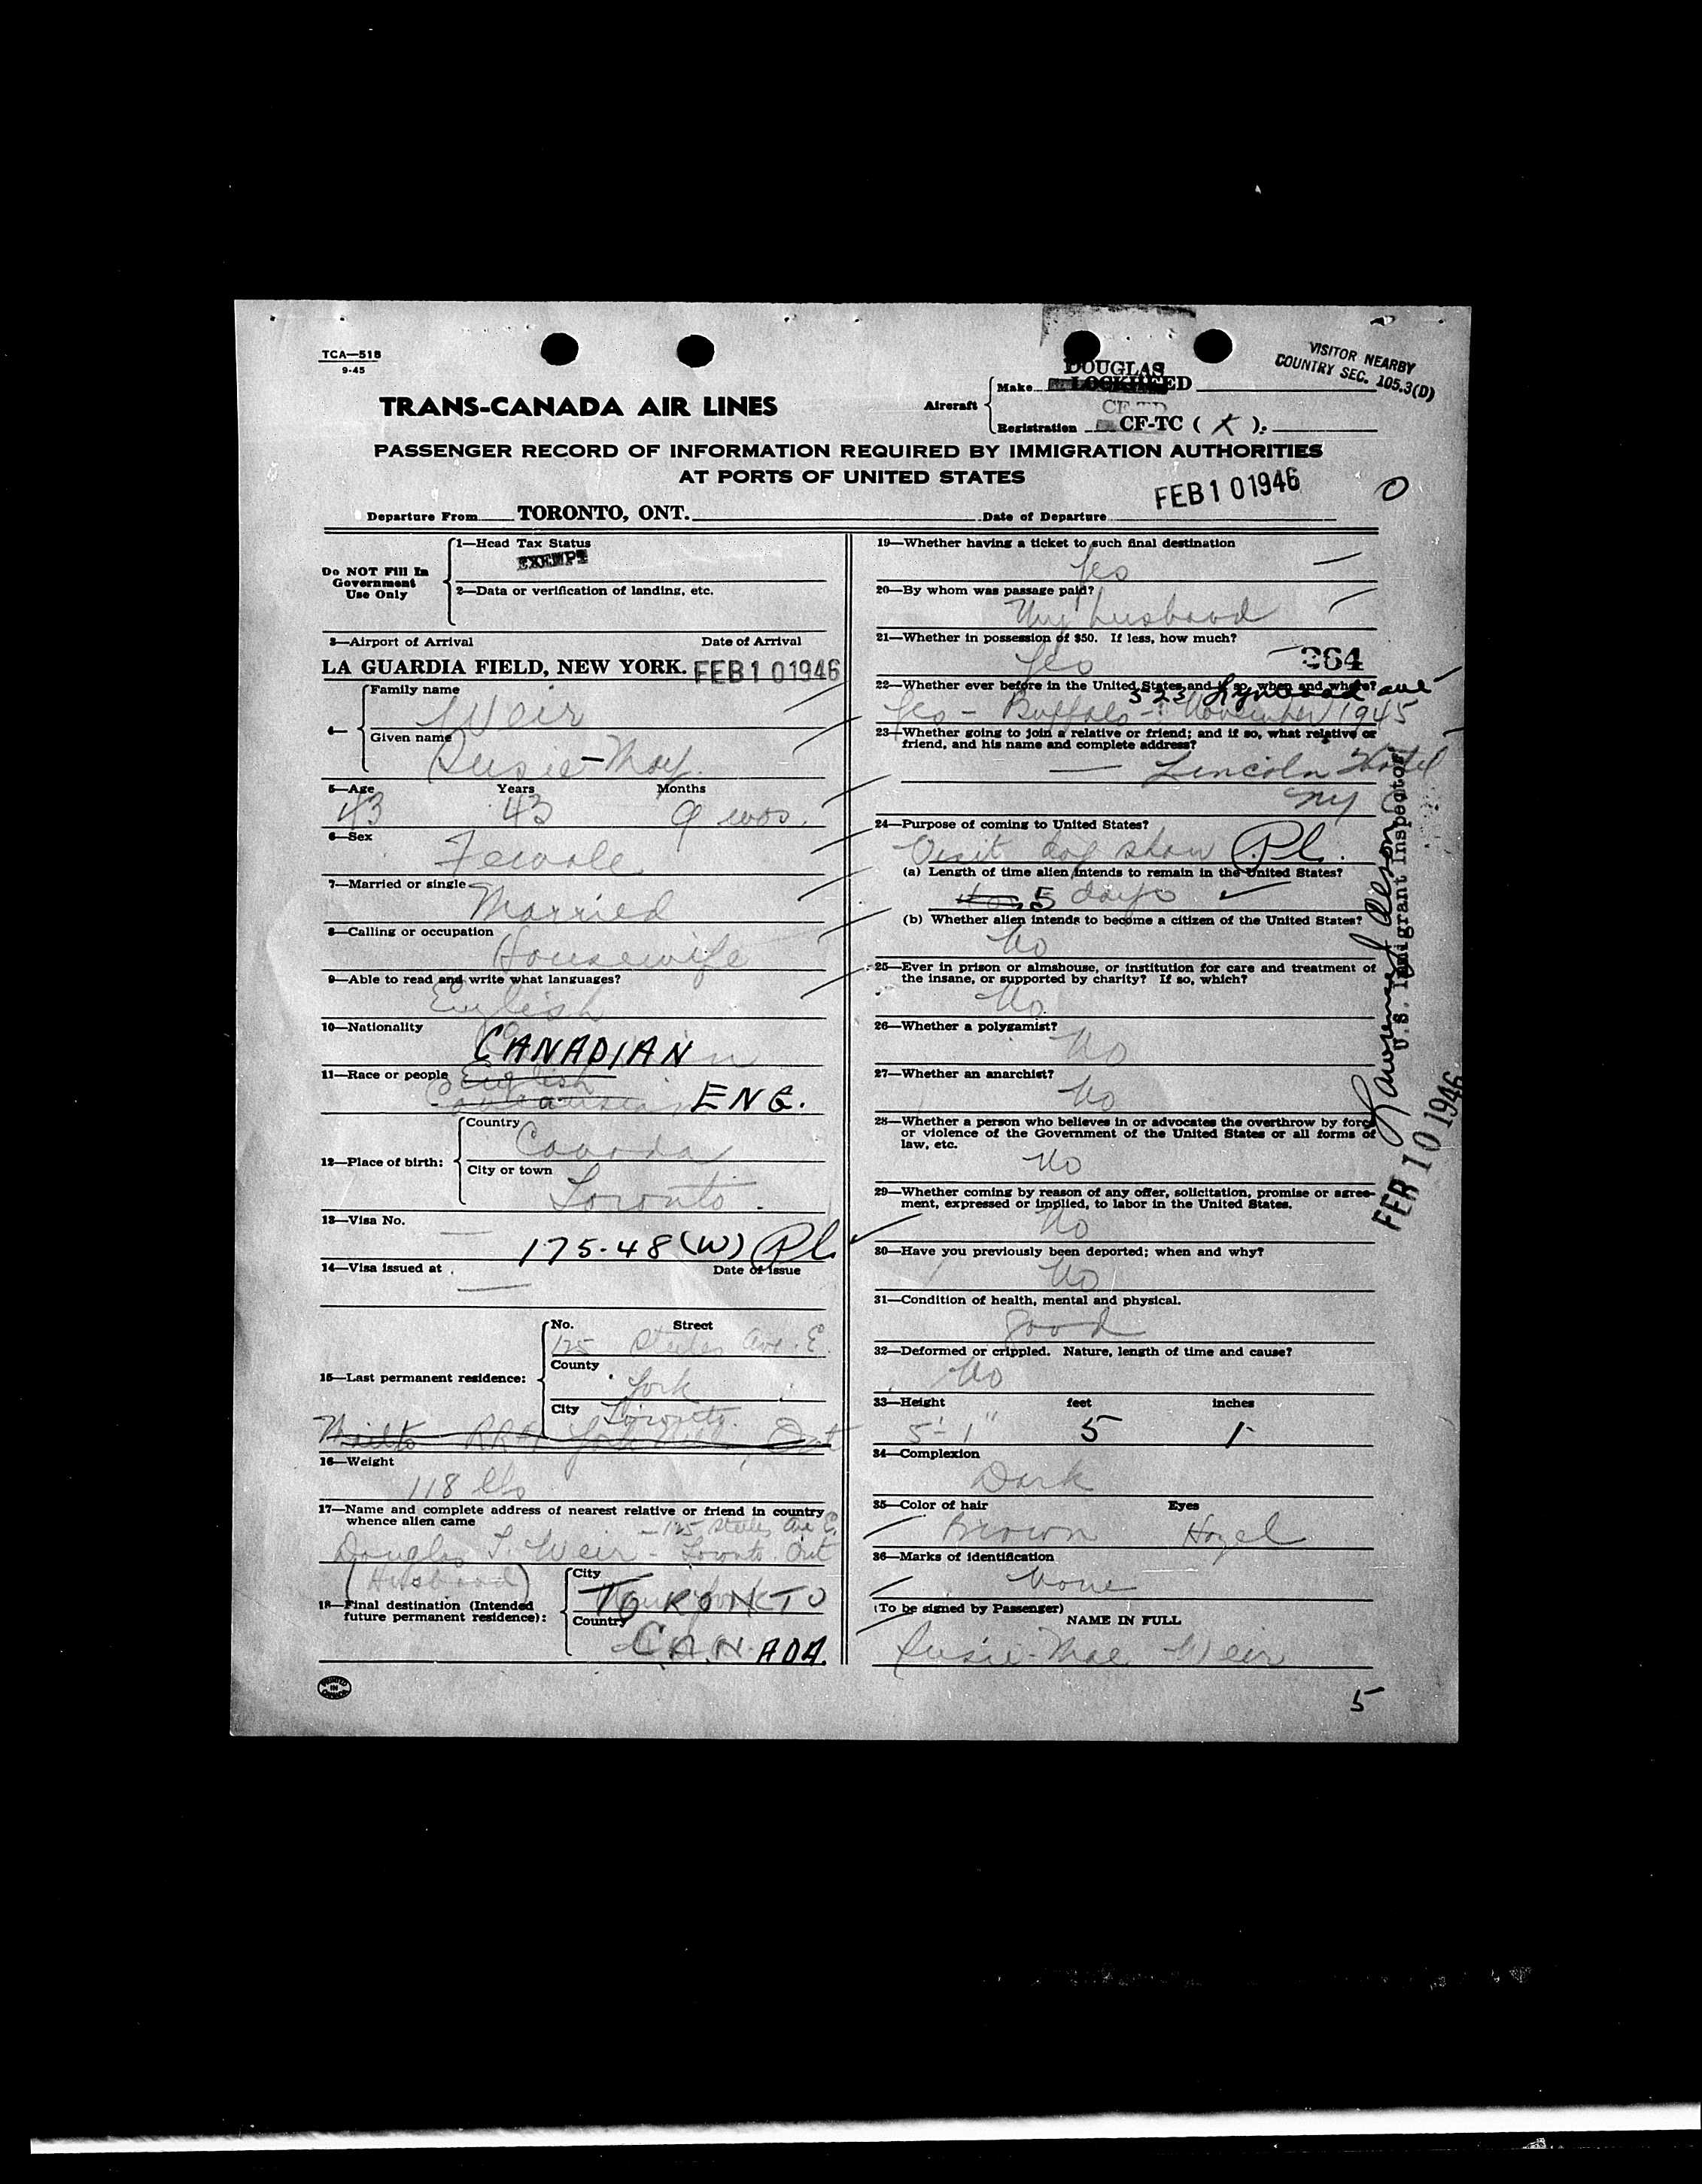 TCA—518
9-45
VISITOR NEARBY
COUNTRY SEC. 105.3(D)
TRANS-CANADA AIR LINES
Aircraft
Make
DOUGLAS
LOCKHEED
Registration CF-TC ( X ).
PASSENGER RECORD OF INFORMATION REQUIRED BY IMMIGRATION AUTHORITIES
AT PORTS OF UNITED STATES
Departure From TORONTO, ONT. Date of Departure FEB 10 1946
Do NOT Fill In
Government
Use Only
1—Head Tax Status
EXEMPT
2—Data or verification of landing, etc.
3—Airport of Arrival Date of Arrival
LA GUARDIA FIELD, NEW YORK. FEB 10 1946
4—
Family name
Weir
Given name
Susie-May
5—Age Years Months
43 43 9 mos.
6—Sex
Female
7—Married or single
Married
8—Calling or occupation
Housewife
9—Able to read and write what languages?
English
10—Nationality
CANADIAN
11—Race or people English
ENG.
12—Place of birth:
Country
Canada
City or town
Toronto
13—Visa No.
175.48 (W) PL
14—Visa issued at Date of Issue
15—Last permanent residence:
No. Street
125 Steeles Ave. E.
County
York
City Toronto.
16—Weight
118 lbs
17—Name and complete address of nearest relative or friend in country
whence alien came
— 125 Steeles Ave E.
Douglas T. Weir - Toronto Ont
(Husband)
18—Final destination (Intended
future permanent residence):
City
TORONTO
Country
CANADA.
19—Whether having a ticket to such final destination
Yes
20—By whom was passage paid?
My husband
21—Whether in possession of $50. If less, how much?
Yes
264
22—Whether ever before in the United States and if so, when and where?
523 Lynwood ave
Yes - Buffalo - November 1945
23—Whether going to join a relative or friend; and if so, what relative or
friend, and his name and complete address?
— Lincoln Hotel
NY
24—Purpose of coming to United States?
Visit dog show PL.
(a) Length of time alien intends to remain in the United States?
5 days
(b) Whether alien intends to become a citizen of the United States?
No
25—Ever in prison or almshouse, or institution for care and treatment of
the insane, or supported by charity? If so, which?
No
26—Whether a polygamist?
No
27—Whether an anarchist?
No
28—Whether a person who believes in or advocates the overthrow by force
or violence of the Government of the United States or all forms of
law, etc.
No
29—Whether coming by reason of any offer, solicitation, promise or agree-
ment, expressed or implied, to labor in the United States.
No
30—Have you previously been deported; when and why?
No
31—Condition of health, mental and physical.
Good
32—Deformed or crippled. Nature, length of time and cause?
No
33—Height feet inches
5'-1" 5 1
34—Complexion
Dark
35—Color of hair Eyes
Brown Hazel
36—Marks of identification
None
(To be signed by Passenger)
NAME IN FULL
Susie-Mae Weir
U.S. Immigrant Inspector
FEB 10 1946
5